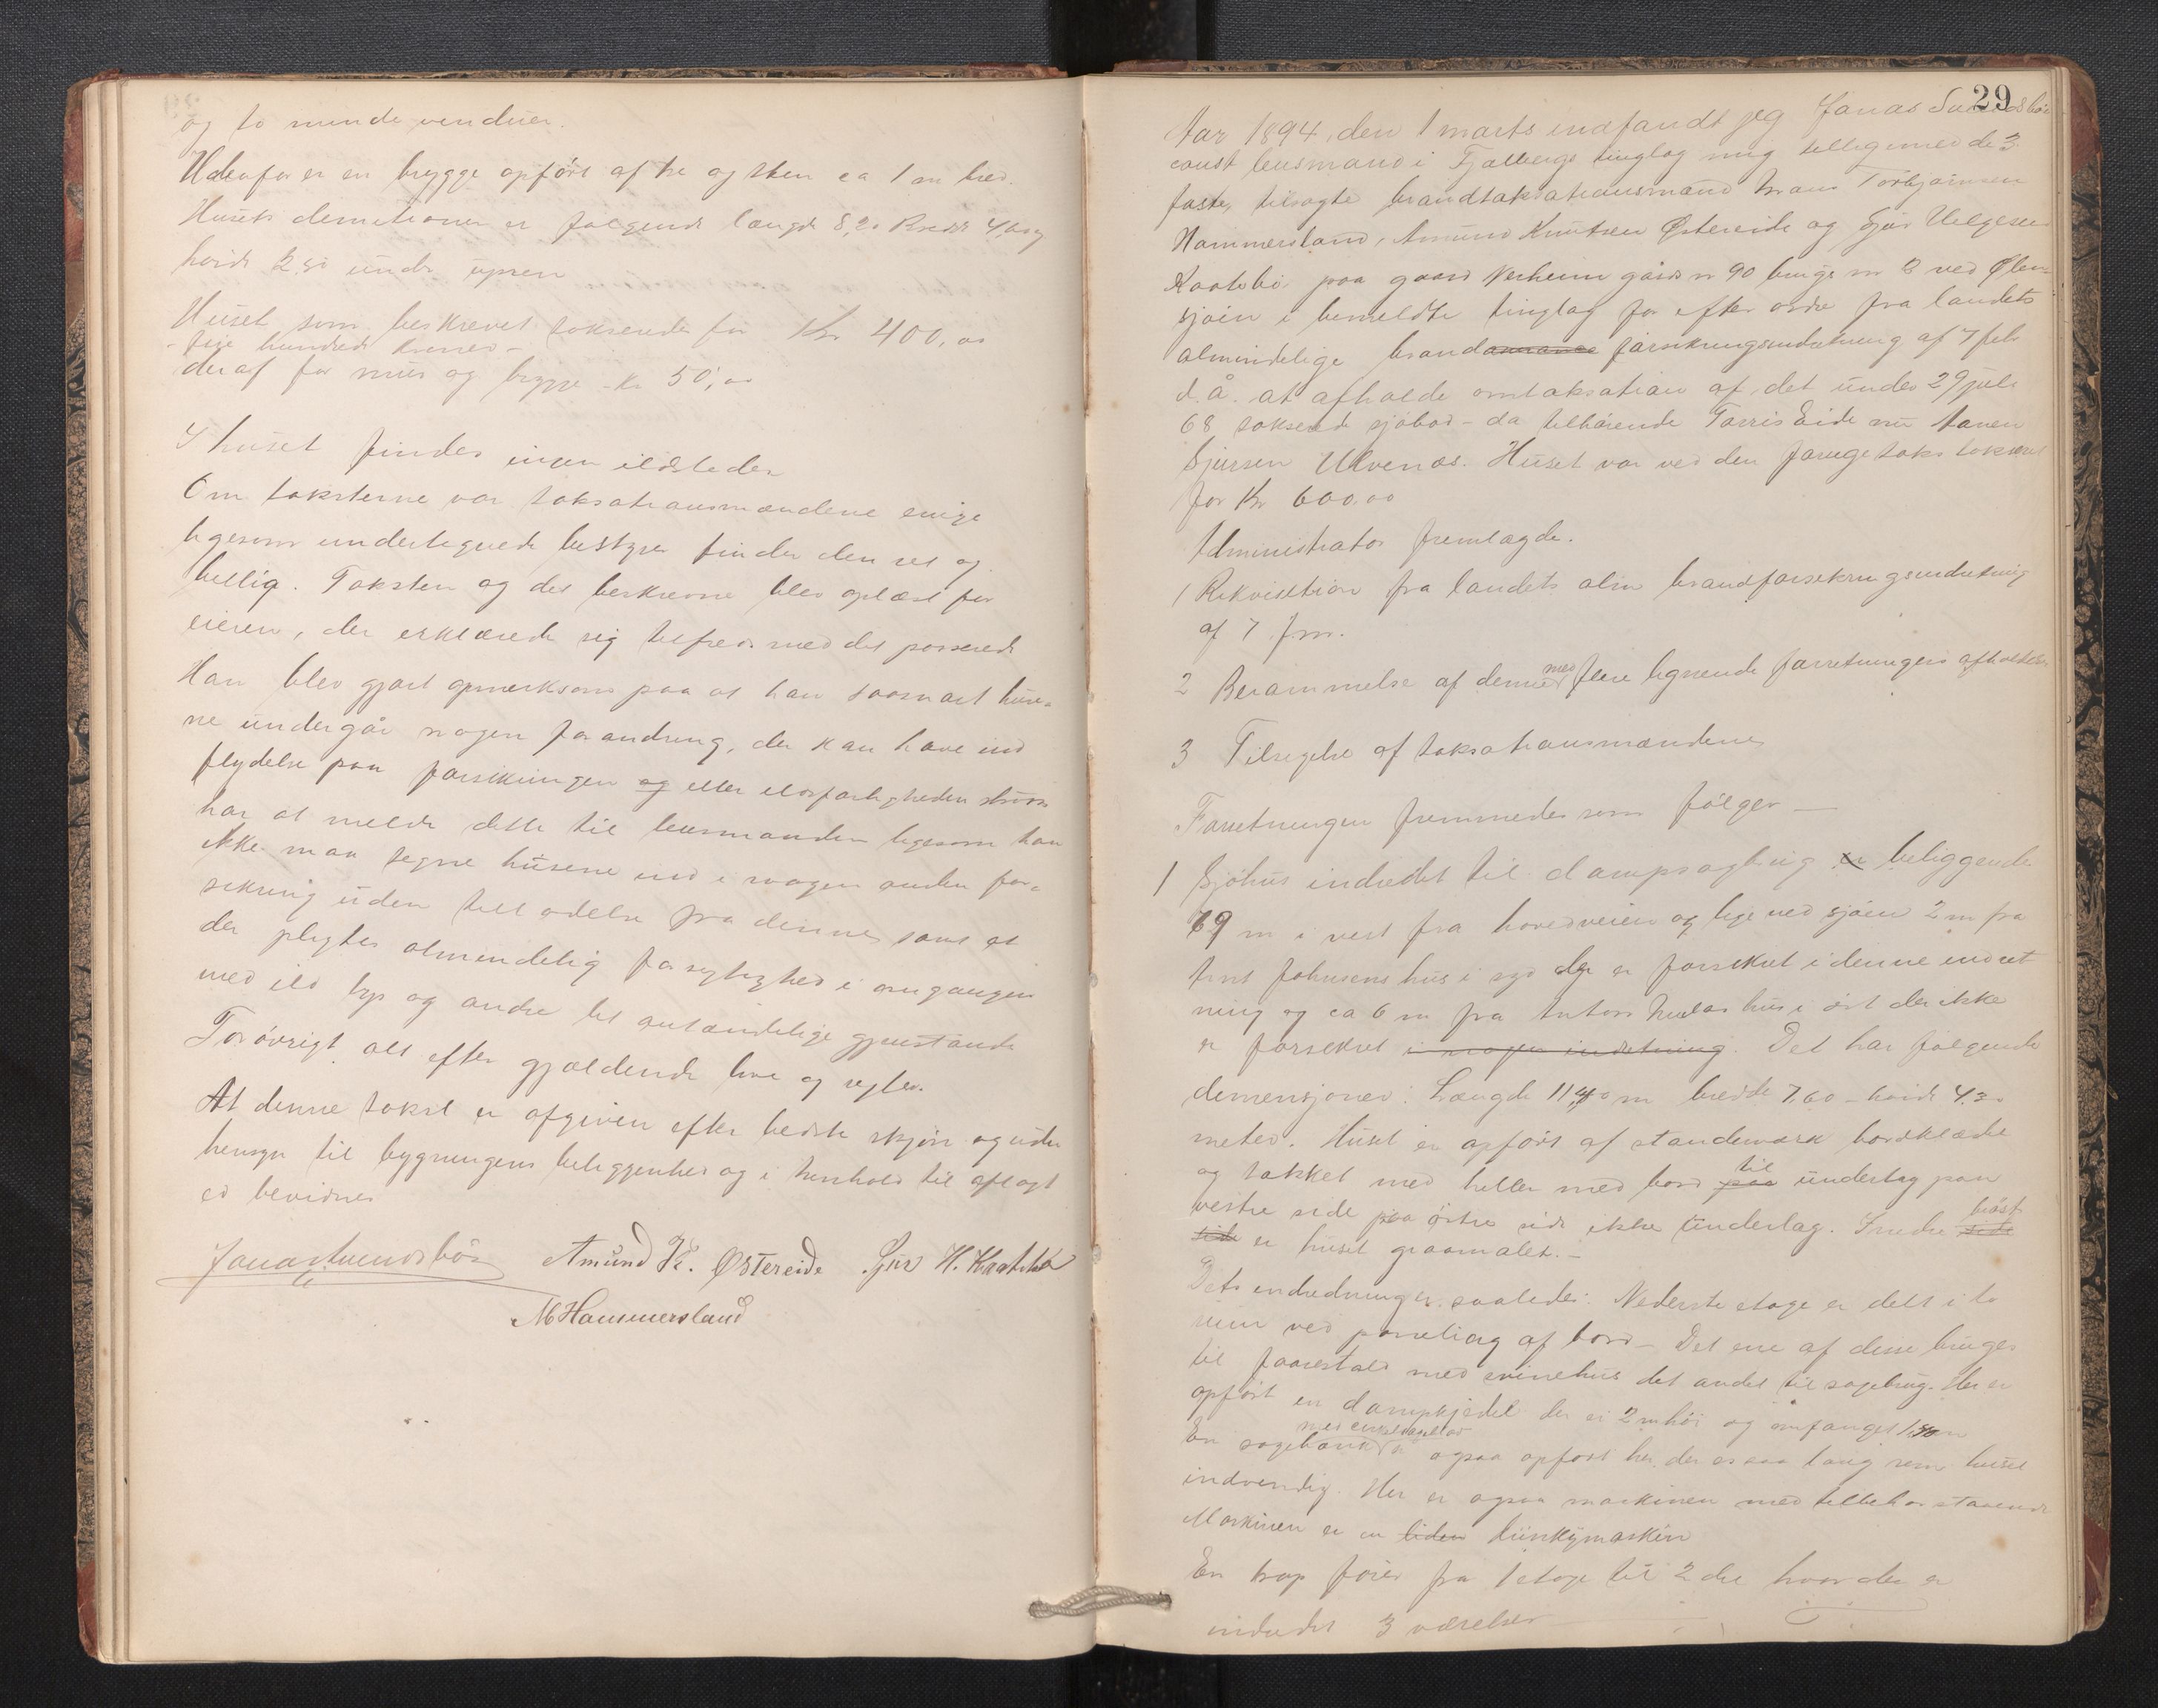 og to mindre venduer.
Udenfor er en brygge opført af tre og sten ca 1 m bred.
Husets demetioner er følgende længde 8,20 Bredde 4,60 og
høide 2,50 under upsen
Huset som beskrevet takseredes for Kr 400,00
- fire hundrede kroner -
deraf for mur og brygge - kr 50,00
I huset findes ingen ildsteder
Om taksterne var taksationsmændene enige
ligesom undertegnede bestyrer finder den ret og
billig. Taksten og det beskrevne blev oplæst for
eieren, der erklærede sig tilfreds med det passerede
Han blev gjort opmerksom paa at han saasnart huse-
ne undergår nogen forandring, der kan have ind
flydelse paa forsikringen og eller ildsfarligheden straks
har at melde dette til lensmanden ligesom han
ikke maa tegne husene ind i nogen anden for-
sikring uden tilladelse fra denne samt at
der pligtes almindelig forsigtighed i omgangen
med ild lys og andre let antændelige gjenstande
Forøvrigt alt efter gjældende love og regler.
At denne takst er afgiven efter bedste skjøn og uden
hensyn til bygningens beliggenhed og i henhold til aflagt
ed bevidnes
Jonas Sundsbø Amund K. Østereide Sjur H. Kaatebø
M Hammersland
29
Aar 1894, den 1 marts indfandt jeg Jonas Sundsbø
const lensmand i Fjelbergs tinglag mig tilligemed de 3
faste, tilsagte brandtaksationsmænd Torbjørnsen
Hammersland, Amund Knutsen Østereide og Sjur Helgesen
Kaatebø paa gaard gårds nr 90 brugs nr 8 ved Ølen-
sjøen i bemeldte tinglag for efter ordre fra landets
almindelige brand forsikringsindretning af 7 febr
d.å. at afholde omtaksation af det under 29 juli
68 takserede sjøbod - da tilhørende Torris Eide nu
Sjursen Ulvenes. Huset var ved den forrige takst takseret
for Kr 600.00
Administrator fremlagde.
1 Rekvisition fra landets alm brandforsekringsindretning
af 7 f.m.
2 Berammelse af denne med flere lignende forretningers afholdelse
3 Tilsigelse af taksationsmændene
Forretningen fremmedes som følger —
1 Sjøhus indredet til dampsagbrug er beliggende
69 m i vest fra hovedveien og lige ved sjøen 2 m fra
Johnsens hus i syd der er forsekret i denne indret
ning og ca 6 m fra Anton hus i øst der ikke
er forsekret i nogen indretning. Det har følgende
demensjoner: Længde 11,40 m bredde 7,60 - høide 4.30
meter. Huset er opført af standerværk bordklædt
og takket med heller med bord paa til underlag paa
vestre side paa østre side ikke underlag. Indre side brøst
side er huset graamalet. -
Dets indredning er saaledes: Nederste etage er delt i to
rum ved paneling af bord - Det ene af disse bruges
til faarestald med svinehus det andet til sagbrug. Her er
opført en dampkjedel der er 2 m høi og omfanget 1,40 m
En sagebænk med cirkelsagblad er ogsaa opført her der er saa lang som huset
indvendig. Her er ogsaa maskinen med tilbehør staaende
Maskinen er en liden maskin
En trap fører fra 1 etage til 2 den hvor der er
indredet 3 værelser